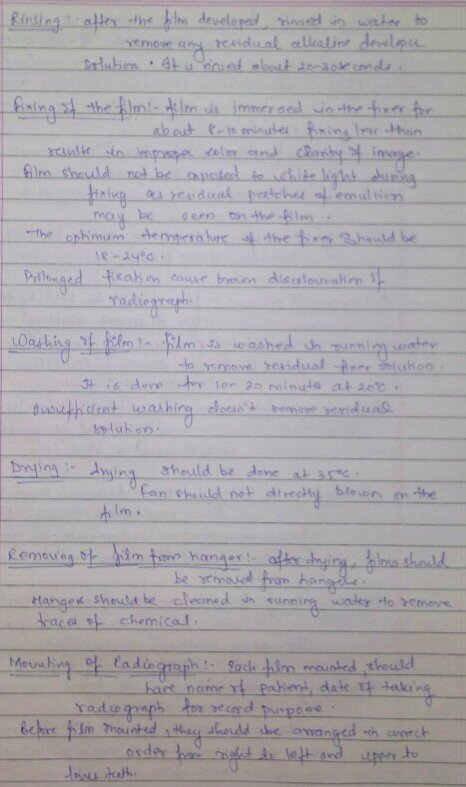 Rinsing :- after the film developed, rinsed in water to
remove any residual alkaline develope
solution. It is rinsed about 20-30seconds.
fixing of the film:- film is immersed in the fixer for
about 8-10 minutes. fixing less than
results in improper color and clarity of image.
film should not be exposed to white light during
fixing as residual patches of emulsion
may be seen on the film.
The optimum temperature of the fixer should be
18-24°C.
Prolonged fixation cause brown discolouration of
radiograph.
Washing of film:- film is washed in running water
to remove residual fixer solution.
It is done for 10-20 minutes at 20°C.
insufficient washing doesn't remove residual
solution.
Drying :- drying should be done at 35°C.
fan should not directly blown on the
film.
Removing of film from hanger:- after drying, films should
be removed from hangers.
Hanger should be cleaned in running water to remove
traces of chemical.
Mounting of Radiograph:- Each film mounted should
have name of patient, date of taking
radiograph for record purpose.
Before film mounted, they should be arranged in correct
order from right to left and upper to
lower teeth.